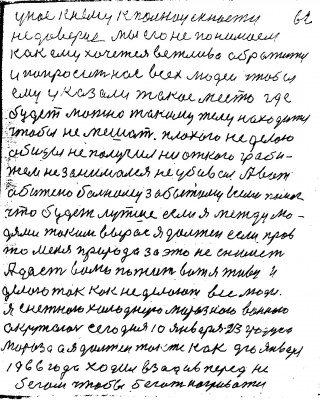 у нас к нему к полной ености 62
недоверие мы его не понимаем
как ему хочется вежливо обратити
и попросит нас всех людей чтобы
ему указали такое место где
будет можно такому телу находити
чтобы не мешат. плохого не делою
обиды не получил ни откого граби-
тем не занимался не убивал А вот
обижено болному забытому всем помог
что будет лутше если я между лю-
дями таким вырос я должен если прав
то меня природа за это не снимет
А даст вам помит ватя живу и
делою так как не делают все люди.
Я снежного холодного морозного
сегодня 10 января 23 градуса
мороза а я должен так же как до января
1966 года ходил взад вперед не
бегом чтобы бегат